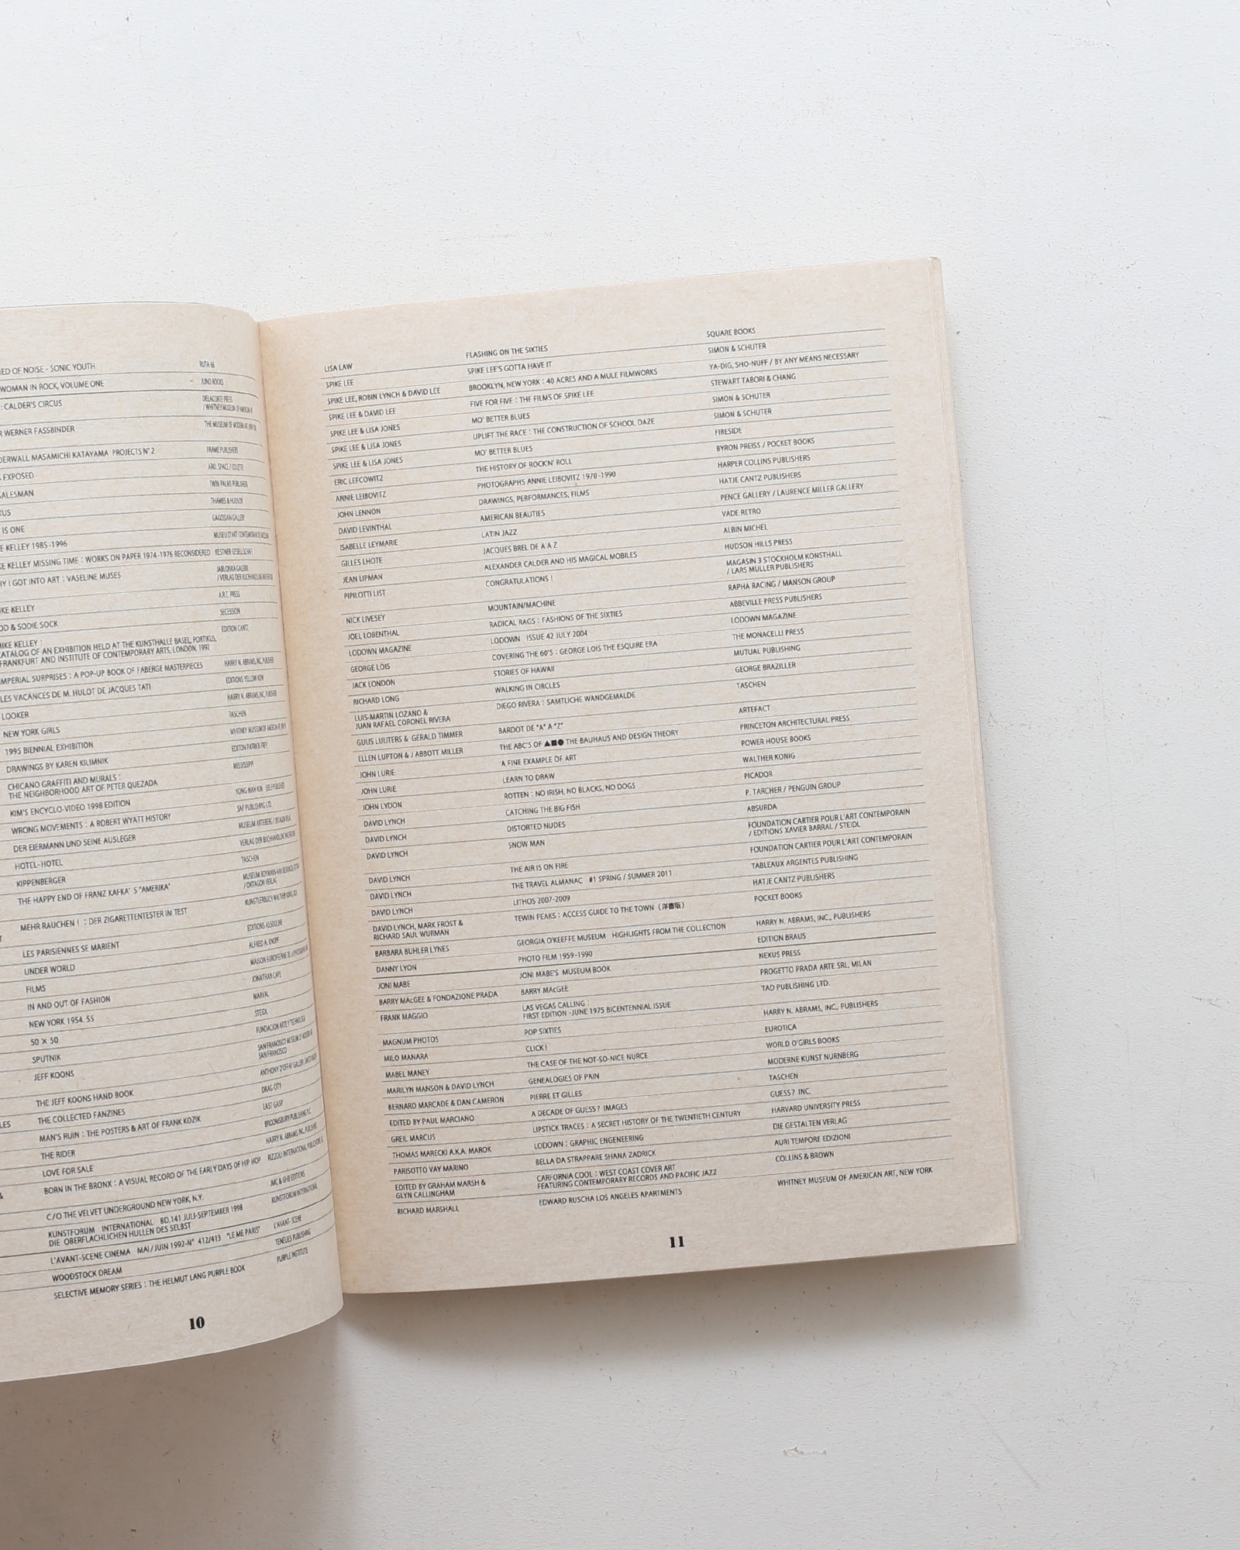 ED OF NOISE - SONIC YOUTH
WOMAN IN ROCK, VOLUME ONE JUNO BOOKS
: CALDER'S CIRCUS DELACORTE PRESS
WERNER FASSBINDER
DERWALL MASAMICHI KATAYAMA PROJECTS N° 2 FRAME PUBLISHERS
EXPOSED
SALESMAN TWIN PALMS PUBLISHER
THAMES & HUDSON
IS ONE
E KELLEY 1985 -1996
KE KELLEY MISSING TIME : WORKS ON PAPER 1974 -1976 RECONSIDERED
HY I GOT INTO ART : VASELINE MUSES
IKE KELLEY A.R.T. PRESS
OD & SODIE SOCK SECESSION
MIKE KELLEY : EDITION CANTZ
CATALOG OF AN EXHIBITION HELD AT THE KUNSTHALLE BASEL, PORTIKUS,
FRANKFURT AND INSTITUTE OF CONTEMPORARY ARTS, LONDON, 1992
IMPERIAL SURPRISES : A POP-UP BOOK OF FABERGE MASTERPIECES
LES VACANCES DE M. HULOT DE JACQUES TATI EDITIONS YELLOW NOW
LOOKER
NEW YORK GIRLS TASCHEN
1995 BIENNIAL EXHIBITION
DRAWINGS BY KAREN KILIMNIK EDITION PATRICK FREY
CHICANO GRAFFITI AND MURALS : MISSISSIPPI
THE NEIGHBORHOOD ART OF PETER QUEZADA
KIM'S ENCYCLO-VIDEO 1998 EDITION
WRONG MOVEMENTS : A ROBERT WYATT HISTORY SAF PUBLISHING LTD.
DER EIERMANN UND SEINE AUSLEGER
HOTEL- HOTEL
KIPPENBERGER TASCHEN
THE HAPPY END OF FRANZ KAFKA' S "AMERIKA"
MEHR RAUCHEN ! : DER ZIGARETTENTESTER IM TEST
LES PARISIENNES SE MARIENT EDITIONS ASSOULINE
UNDER WORLD ALFRED A. KNOPF
FILMS
IN AND OUT OF FASHION JONATHAN CAPE
NEW YORK 1954. 55 MARVAL
50 × 50 STEIDL
SPUTNIK
JEFF KOONS
THE JEFF KOONS HAND BOOK
THE COLLECTED FANZINES DRAG CITY
MAN'S RUIN : THE POSTERS & ART OF FRANK KOZIK LAST GASP
THE RIDER
LOVE FOR SALE
BORN IN THE BRONX : A VISUAL RECORD OF THE EARLY DAYS OF HIP HOP
C/O THE VELVET UNDERGROUND NEW YORK, N.Y.
KUNSTFORUM INTERNATIONAL BD.141 JULI-SEPTEMBER 1998 KUNSTFORUM INTERNATIONAL
DIE OBERFLACHLICHEN HULLEN DES SELBST
L'AVANT-SCENE CINEMA MAI / JUIN 1992-N° 412/413 "LE ME PARIS" L'AVANT-SCENE
WOODSTOCK DREAM TENEUES PUBLISHING
SELECTIVE MEMORY SERIES : THE HELMUT LANG PURPLE BOOK PURPLE INSTITUTE
10
LISA LAW FLASHING ON THE SIXTIES SQUARE BOOKS
SPIKE LEE SPIKE LEE'S GOTTA HAVE IT SIMON & SCHUTER
SPIKE LEE, ROBIN LYNCH & DAVID LEE BROOKLYN, NEW YORK : 40 ACRES AND A MULE FILMWORKS YA-DIG, SHO-NUFF / BY ANY MEANS NECESSARY
SPIKE LEE & DAVID LEE FIVE FOR FIVE : THE FILMS OF SPIKE LEE STEWART TABORI & CHANG
SPIKE LEE & LISA JONES MO' BETTER BLUES SIMON & SCHUTER
SPIKE LEE & LISA JONES UPLIFT THE RACE : THE CONSTRUCTION OF SCHOOL DAZE SIMON & SCHUTER
SPIKE LEE & LISA JONES MO' BETTER BLUES FIRESIDE
ERIC LEFCOWITZ THE HISTORY OF ROCKN' ROLL BYRON PREISS / POCKET BOOKS
ANNIE LEIBOVITZ PHOTOGRAPHS ANNIE LEIBOVITZ 1970 -1990 HARPER COLLINS PUBLISHERS
JOHN LENNON DRAWINGS, PERFORMANCES, FILMS HATJE CANTZ PUBLISHERS
DAVID LEVINTHAL AMERICAN BEAUTIES PENCE GALLERY / LAURENCE MILLER GALLERY
ISABELLE LEYMARIE LATIN JAZZ VADE RETRO
GILLES LHOTE JACQUES BREL DE A A Z ALBIN MICHEL
JEAN LIPMAN ALEXANDER CALDER AND HIS MAGICAL MOBILES HUDSON HILLS PRESS
PIPILOTTI LIST CONGRATULATIONS ! MAGASIN 3 STOCKHOLM KONSTHALL
/ LARS MULLER PUBLISHERS
NICK LIVESEY MOUNTAIN/MACHINE RAPHA RACING / MANSON GROUP
JOEL LOBENTHAL RADICAL RAGS : FASHIONS OF THE SIXTIES ABBEVILLE PRESS PUBLISHERS
LODOWN MAGAZINE LODOWN ISSUE 42 JULY 2004 LODOWN MAGAZINE
GEORGE LOIS COVERING THE 60'S : GEORGE LOIS THE ESQUIRE ERA THE MONACELLI PRESS
JACK LONDON STORIES OF HAWAII MUTUAL PUBLISHING
RICHARD LONG WALKING IN CIRCLES GEORGE BRAZILLER
LUIS-MARTIN LOZANO & DIEGO RIVERA : SAMTLICHE WANDGEMALDE TASCHEN
JUAN RAFAEL CORONEL RIVERA
GUUS LUIJTERS & GERALD TIMMER BARDOT DE "A" A "Z" ARTEFACT
ELLEN LUPTON & J ABBOTT MILLER THE ABC'S OF ▲■● THE BAUHAUS AND DESIGN THEORY PRINCETON ARCHITECTURAL PRESS
JOHN LURIE A FINE EXAMPLE OF ART POWER HOUSE BOOKS
JOHN LURIE LEARN TO DRAW WALTHER KONIG
JOHN LYDON ROTTEN : NO IRISH, NO BLACKS, NO DOGS PICADOR
DAVID LYNCH CATCHING THE BIG FISH P. TARCHER / PENGUIN GROUP
DAVID LYNCH DISTORTED NUDES ABSURDA
DAVID LYNCH SNOW MAN FOUNDATION CARTIER POUR L'ART CONTEMPORAIN
/ EDITIONS XAVIER BARRAL / STEIDL
DAVID LYNCH THE AIR IS ON FIRE FOUNDATION CARTIER POUR L'ART CONTEMPORAIN
DAVID LYNCH THE TRAVEL ALMANAC #1 SPRING / SUMMER 2011 TABLEAUX ARGENTES PUBLISHING
DAVID LYNCH LITHOS 2007-2009 HATJE CANTZ PUBLISHERS
DAVID LYNCH, MARK FROST & TEWIN PEAKS : ACCESS GUIDE TO THE TOWN (洋書版) POCKET BOOKS
RICHARD SAUL WURMAN
BARBARA BUHLER LYNES GEORGIA O'KEEFFE MUSEUM HIGHLIGHTS FROM THE COLLECTION HARRY N. ABRAMS, INC., PUBLISHERS
DANNY LYON PHOTO FILM 1959 -1990 EDITION BRAUS
JONI MABE JONI MABE'S MUSEUM BOOK NEXUS PRESS
BARRY MAcGEE & FONDAZIONE PRADA BARRY MAcGEE PROGETTO PRADA ARTE SRL, MILAN
FRANK MAGGIO LAS VEGAS CALLING : TAD PUBLISHING LTD.
FIRST EDITION -JUNE 1975 BICENTENNIAL ISSUE
MAGNUM PHOTOS POP SIXTIES HARRY N. ABRAMS, INC., PUBLISHERS
MILO MANARA CLICK ! EUROTICA
MABEL MANEY THE CASE OF THE NOT-SO-NICE NURCE WORLD O'GIRLS BOOKS
MARILYN MANSON & DAVID LYNCH GENEALOGIES OF PAIN MODERNE KUNST NURNBERG
BERNARD MARCADE & DAN CAMERON PIERRE ET GILLES TASCHEN
EDITED BY PAUL MARCIANO A DECADE OF GUESS? IMAGES GUESS? INC.
GREIL MARCUS LIPSTICK TRACES : A SECRET HISTORY OF THE TWENTIETH CENTURY HARVARD UNIVERSITY PRESS
THOMAS MARECKI A.K.A. MAROK LODOWN : GRAPHIC ENGENEERING DIE GESTALTEN VERLAG
PARISOTTO VAY MARINO BELLA DA STRAPPARE SHANA ZADRICK AURI TEMPORE EDIZIONI
EDITED BY GRAHAM MARSH & CARIFORNIA COOL : WEST COAST COVER ART COLLINS & BROWN
GLYN CALLINGHAM FEATURING CONTEMPORARY RECORDS AND PACIFIC JAZZ
RICHARD MARSHALL EDWARD RUSCHA LOS ANGELES APARTMENTS WHITNEY MUSEUM OF AMERICAN ART, NEW YORK
11